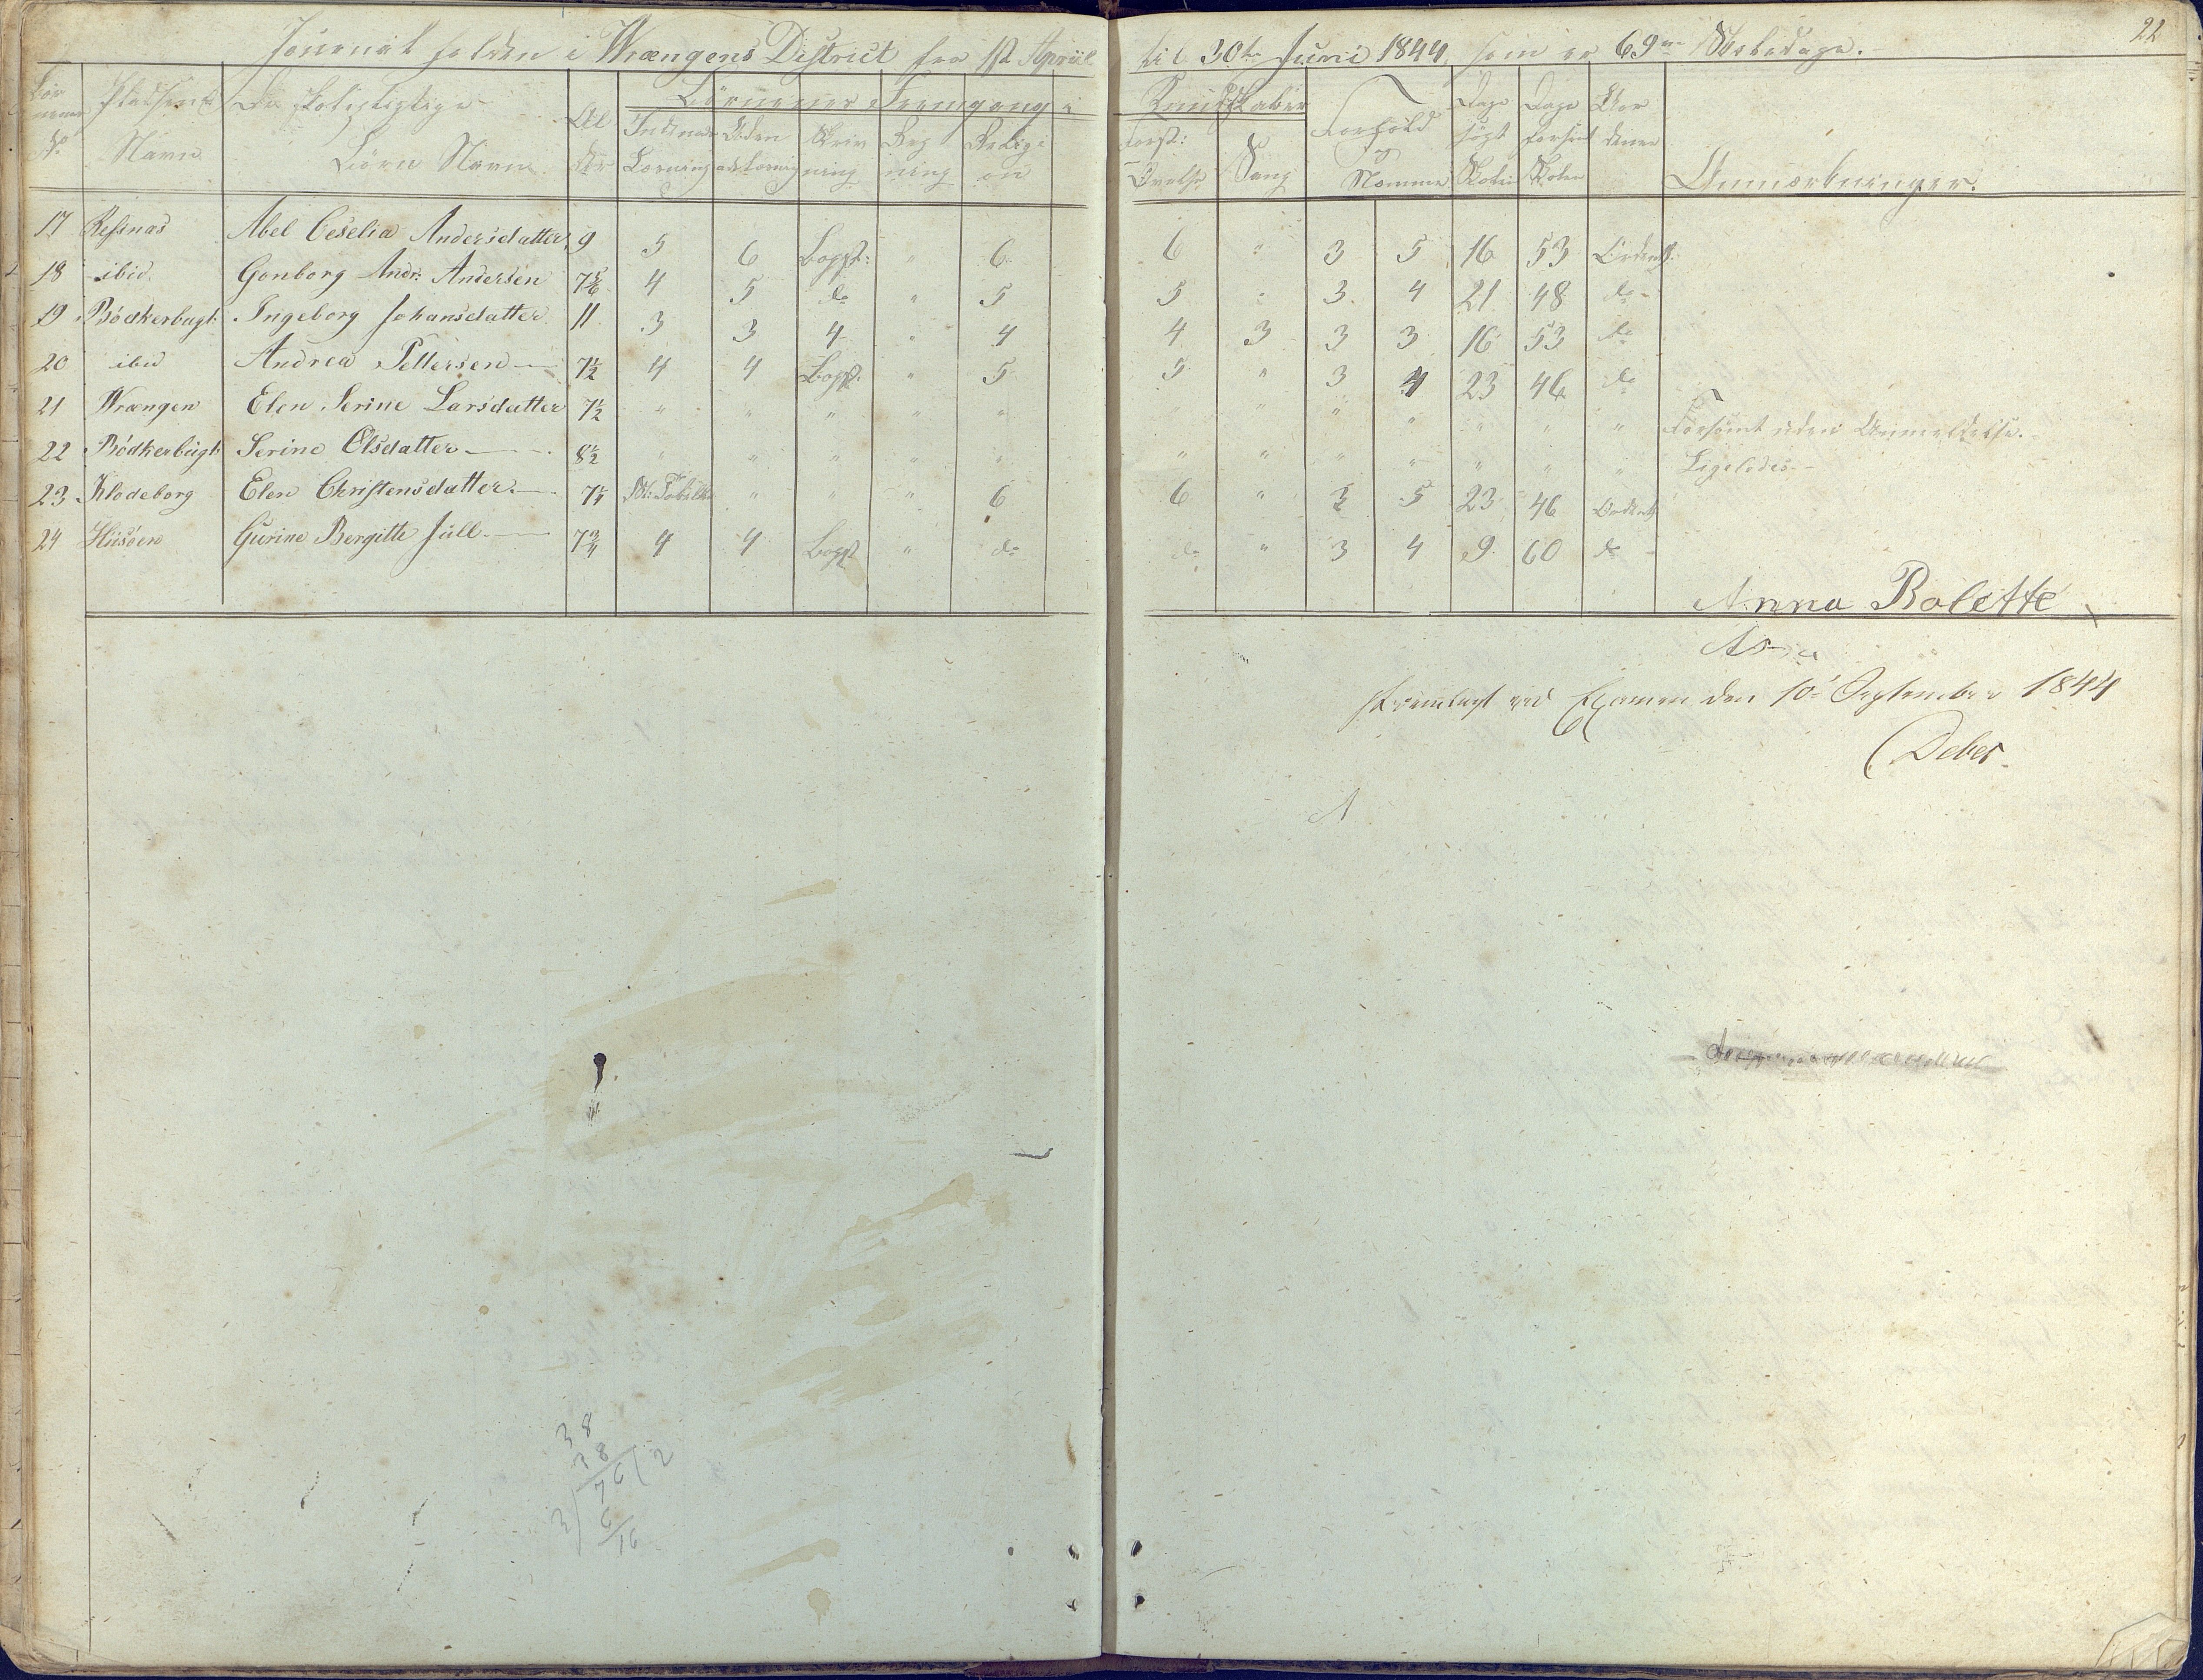 22
Journal holden i Wrængens District fra 1st April til 30te Juni 1844, som er 69 Skoledage.
Børnenes No
Pladsens Navn
De skolepligtige Børns Navne
Alder
Børnenes Fremgang i Kundskaber
Indenad Læsning
Uden ad Læsning
Skrivning
Regning
Religion
Forst: Øvelse
Sang
Forhold og Nemme
Dage søgt Skolen
Dage forsømt Skolen
Anmærkninger.
17 Resinas Abel Ceselia Andersdatter 9 5 6 Bogst: " 6 6 " 3 5 16 53 Ordentl.
18 ibid. Gonborg Andr: Andersen 7 5/6 4 5 do " 5 5 " 3 4 21 48 do
19 Bödkerbugt: Ingeborg Johansdatter 11 3 3 4 " 4 4 3 3 3 16 53 do
20 ibid Andrea Pettersen 7 1/2 4 4 Bogst: " 5 5 " 3 4 23 46 do
21 Wrængen Elen Serine Larsdatter 7 1/2 " " " " " " " " " " " " Forsömt uden Anmeldelse.
22 Bödkerbugt: Serine Olsdatter 8 1/2 " " " " " " " " " " " " Ligeledes.
23 Klodeborg Elen Christensdatter 7 1/4 " " " 6 6 " 3 5 23 46 Ordentl.
24 Hüsöen Gurine Bergitte Jull 7 3/4 4 4 Bogst " do do " 3 4 9 60 do
Anna Bolette
Fremlagt ved Examen den 10 September 1844
Debes
A
38
38
76 / 2
3 / 6
16